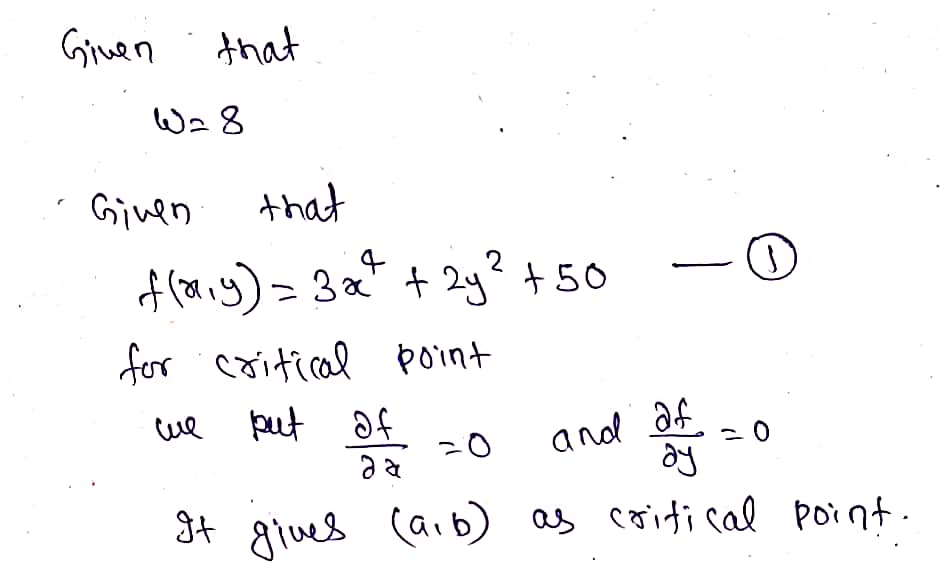 Given that
W=8
Given that
f(x,y) = 3x⁴ + 2y² + 50 — ①
for critical point
we put ∂f/∂x = 0 and ∂f/∂y = 0
It gives (a,b) as critical point.